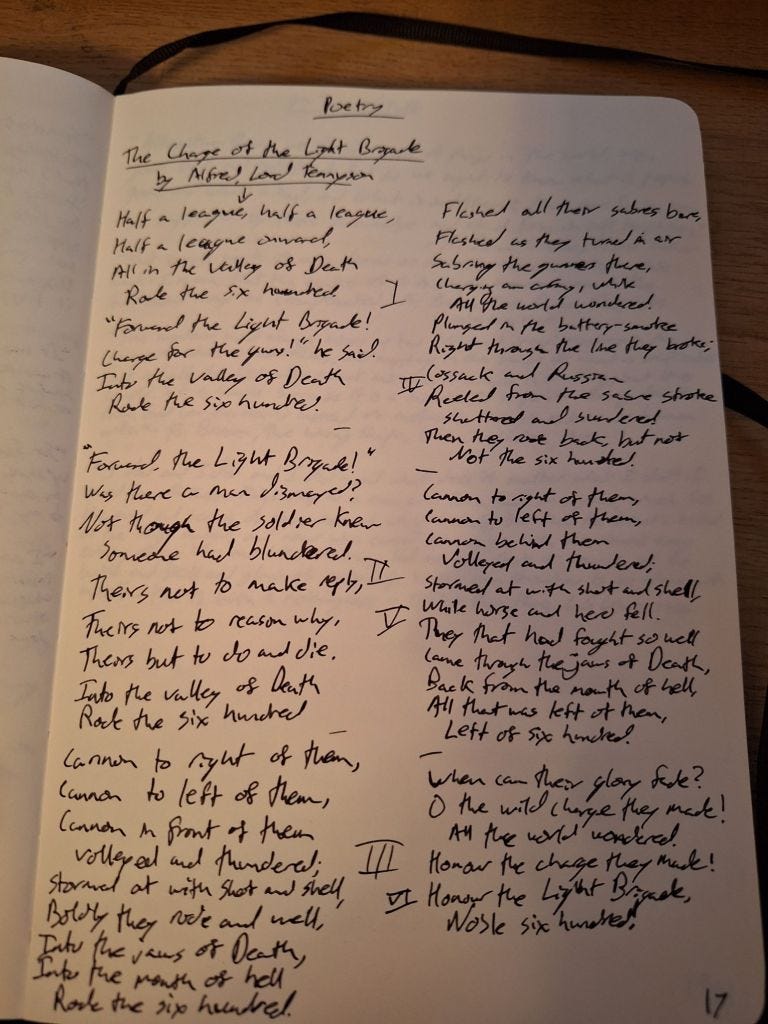 Poetry
The Charge of the Light Brigade
by Alfred, Lord Tennyson
↓
Half a league, half a league,
Half a league onward,
All in the valley of Death
Rode the six hundred.
I
"Forward the Light Brigade!
Charge for the guns!" he said.
Into the valley of Death
Rode the six hundred.
"Forward, the Light Brigade!"
Was there a man dismayed?
Not though the soldier knew
Someone had blundered.
II
Theirs not to make reply,
Theirs not to reason why,
Theirs but to do and die.
Into the valley of Death
Rode the six hundred
Cannon to right of them,
Cannon to left of them,
Cannon in front of them
Volleyed and thundered;
III
Stormed at with shot and shell,
Boldly they rode and well,
Into the jaws of Death,
Into the mouth of hell
Rode the six hundred.
Flashed all their sabres bare,
Flashed as they turned in air
Sabring the gunners there,
Charging an army, while
All the world wondered.
Plunged in the battery-smoke
Right through the line they broke;
IV
Cossack and Russian
Reeled from the sabre stroke
Shattered and sundered.
Then they rode back, but not
Not the six hundred.
Cannon to right of them,
Cannon to left of them,
Cannon behind them
Volleyed and thundered;
Stormed at with shot and shell,
V
While horse and hero fell.
They that had fought so well
Came through the jaws of Death,
Back from the mouth of hell,
All that was left of them,
Left of six hundred.
When can their glory fade?
O the wild charge they made!
All the world wondered.
Honour the charge they made!
VI
Honour the Light Brigade,
Noble six hundred!
17